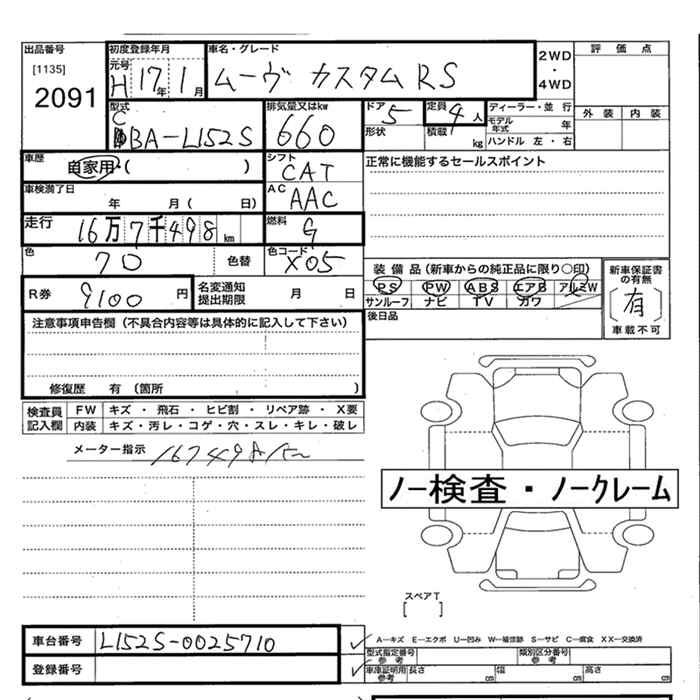 出品番号 初度登録年月 車名・グレード 2WD ・ 4WD 評価点
[1135] 元号 H 17年 1月 ムーヴ カスタム RS
2091 外装 内装
型式 排気量又はkw ドア 5 定員 4人 ディーラー・並行
CBA-L152S 660 形状 積載 kg モデル年式 年
ハンドル 左・右
車歴 自家用・( ) シフト CAT 正常に機能するセールスポイント
車検満了日 年 月( 日) AC AAC
走行 16万7千498km 燃料 G
色 70 色替 色コード X05
装備品(新車からの純正品に限り○印) 新車保証書の有無
R券 9100円 名変通知提出期限 月 日 PS PW ABS エアB アルミW
サンルーフ ナビ TV カワ [有]
注意事項申告欄(不具合内容等は具体的に記入して下さい) 後日品 車載不可
修復歴 有(箇所 )
検査員記入欄 FW キズ・飛石・ヒビ割・リペア跡・X要
内装 キズ・汚レ・コゲ・穴・スレ・キレ・破レ
メーター指示 167498km
ノー検査・ノークレーム
スペアT
[ ]
車台番号 L152S-0025710 A-キズ E-エクボ U-凹み W-補修跡 S-サビ C-腐食 XX-交換済
型式指定番号 参考 類別区分番号 参考
登録番号 車庫証明用 参考 長さ cm 幅 cm 高さ cm